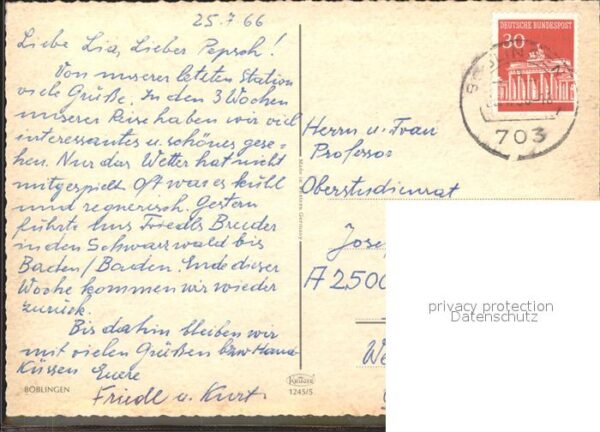 25.7.66
Liebe Lia, Lieber Pepsch!
Von unserer letzten Station
viele Grüße. In den 3 Wochen
unserer Reise haben wir viel
interessantes u. schönes gese-
hen. Nur das Wetter hat nicht
mitgespielt Oft war es kühl
und regnerisch. Gestern
führte uns Friedls Bruder
in den Schwarzwald bis
Baden/Baden. Ende dieser
Woche kommen wir wieder
zurück.
Bis dahin bleiben wir
mit vielen Grüßen bzw Hand
Küssen Euere
Friedl u. Kurt
BÖBLINGEN
Made in Western Germany
1245/5
DEUTSCHE BUNDESPOST
30
703
Herrn u. Frau
Professor
Oberstudienrat
Jose
A 2500
We
privacy protection
Datenschutz